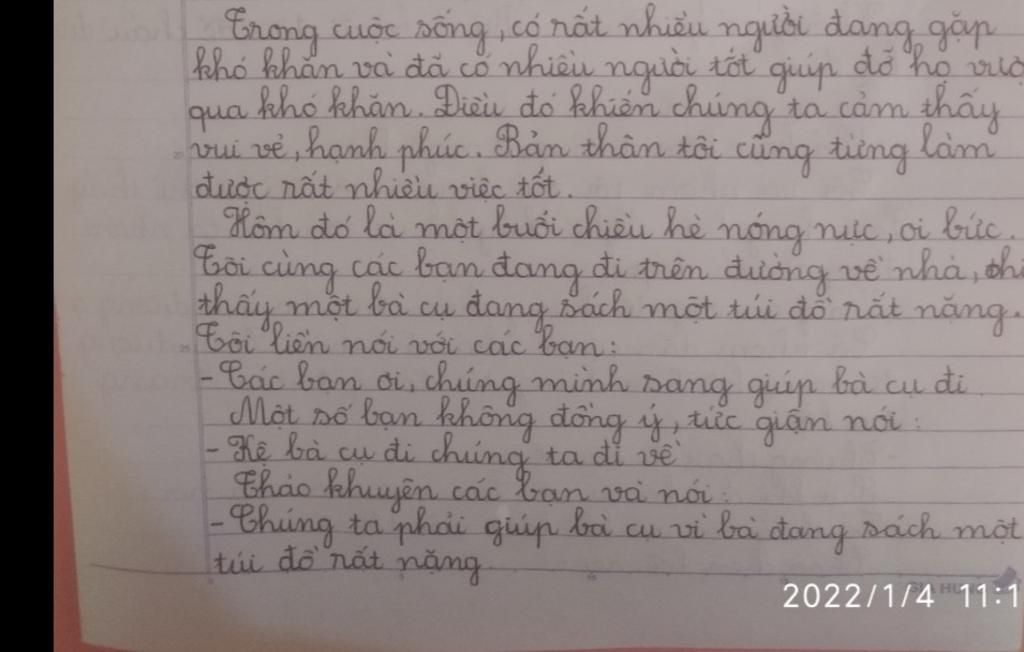 Trong cuộc sống, có rất nhiều người đang gặp
khó khăn và đã có nhiều người tốt giúp đỡ họ
qua khó khăn. Điều đó khiến chúng ta cảm thấy
vui vẻ, hạnh phúc. Bản thân tôi cũng từng làm
được rất nhiều việc tốt.
Hôm đó là một buổi chiều hè nóng nực, oi bức.
Tôi cùng các bạn đang đi trên đường về nhà,
thấy một bà cụ đang sách một túi đồ rất nặng.
Tôi liền nói với các bạn:
- Các bạn ơi, chúng mình sang giúp bà cụ đi
Một số bạn không đồng ý, tức giận nói:
- Kệ bà cụ đi chúng ta đi về
Thảo khuyên các bạn và nói:
- Chúng ta phải giúp bà cụ vì bà đang sách một
túi đồ rất nặng
2022/1/4 11:1